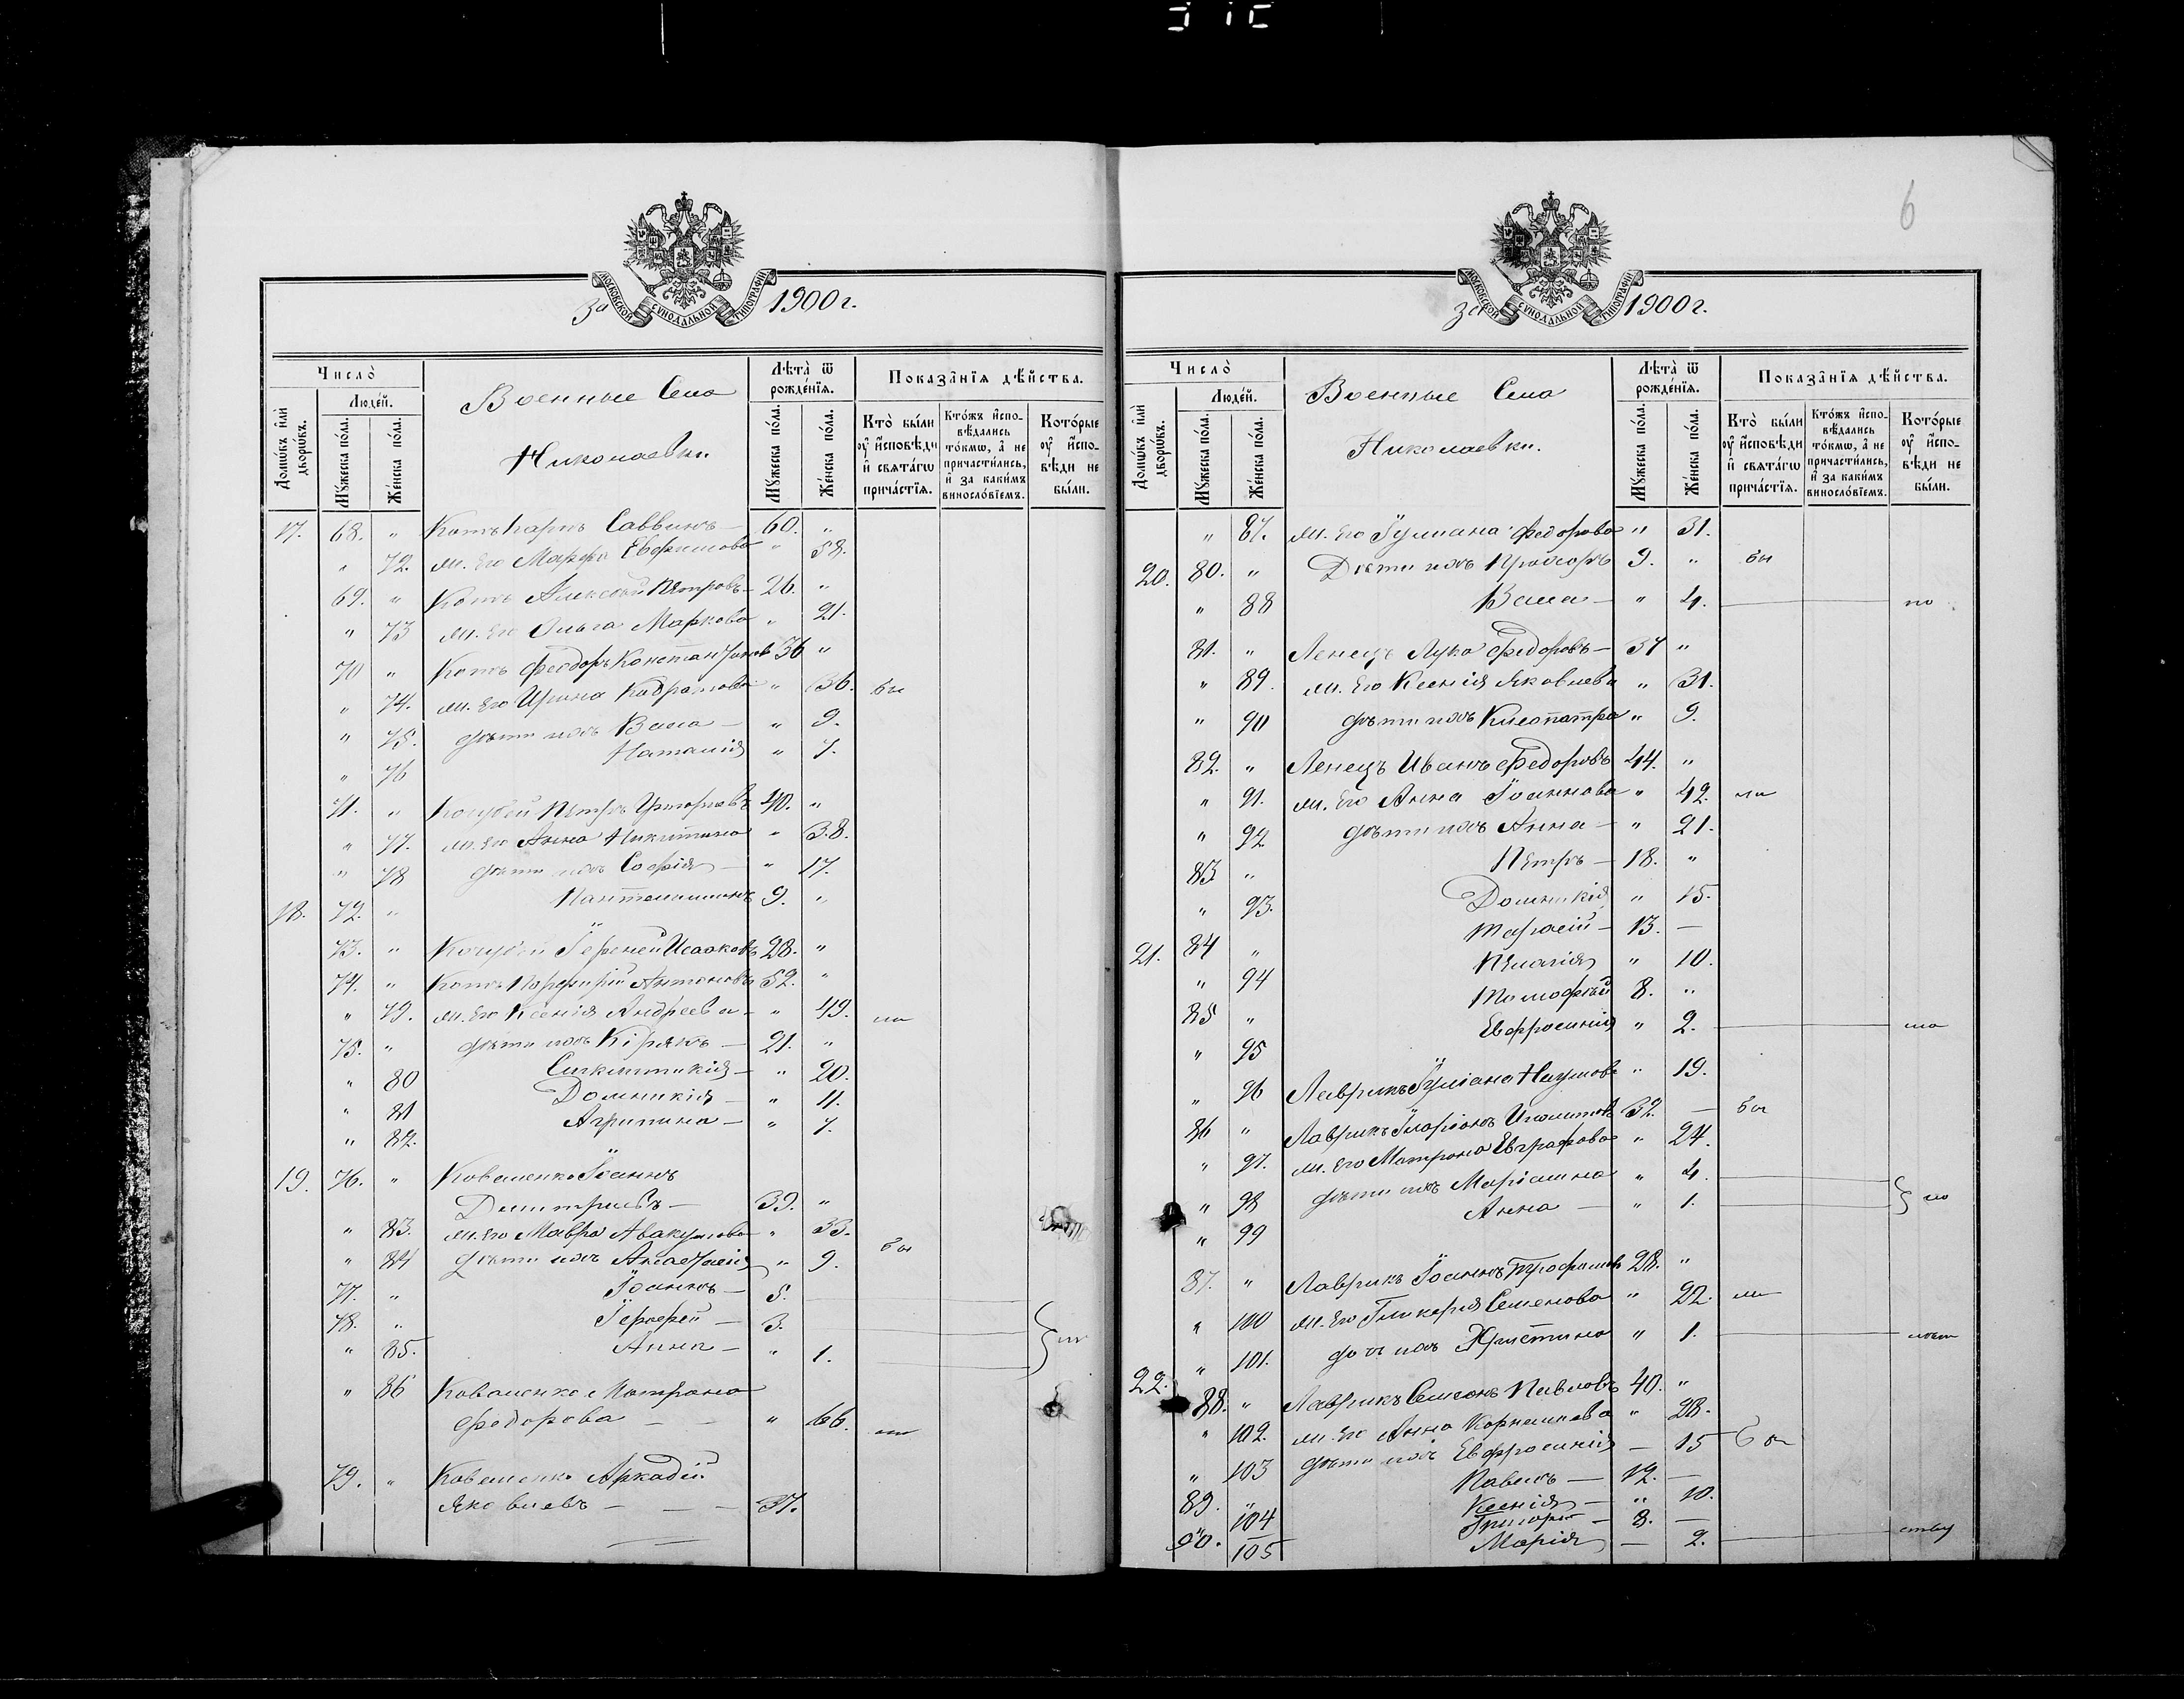 6
за 1900 г.
МОСКОВСКОЙ СѴНОДАЛЬНОЙ ТИПОГРАФІИ
Число̀
Домѡ́въ и҆лѝ дворѡ́въ.
Люде́й.
Мꙋ́жеска по́ла.
Же́нска по́ла.
Военные Села
Николаевки.
Лѣта̀ ѿ рожде́нїѧ.
Мꙋ́жеска по́ла.
Же́нска по́ла.
Показа̑нїѧ дѣ́йства.
Кто̀ бы́ли оу҆ и҆сповѣ́ди и҆ свѧта́гѡ прича́стїѧ.
Кто́жъ и҆спо-вѣ́дались то́кмѡ, а҆ не причасти́лись, и҆ за каки́мъ винословїемъ.
Кото́рые оу҆ и҆спо-вѣ́ди не бы́ли.
17. 68. " Котъ Карпъ Саввинъ — 60. "
" 72. ж. Его Марфа Евфимова " 58.
69. " Котъ Алексѣй Петровъ — 26. "
" 73 ж. Его Ольга Маркова " 21.
70 " Котъ Феодоръ Константиновъ 36 "
" 74. ж. Его Ирина Кодратова " 36. бы
" 75. дѣти ихъ Васса — " 9.
" 76 Наталія " 7.
71. " Кочубей Петръ Григорьевъ 40. "
" 77. ж. Его Анна Никитина " 38.
" 78 дѣти ихъ Софія — " 17.
18. 72. " Пантелиимонъ 9. "
73. " Кочубей Іеремей Исааковъ 28. "
74. " Котъ Порфирій Антоновъ 52. "
" 79. ж. Его Ксенія Андреева — " 49. ли
75. " дѣти ихъ Кірякъ — 21. "
" 80 Синклитикія — " 20.
" 81 Домникія — " 11.
" 82. Агрипина — " 7.
19. 76. " Коваленко Іоаннъ
Димитріевъ — 39. "
" 83. ж. Его Мавра Авакумова " 33.
" 84 дѣти ихъ Анастасія " 9. бы
77. " Іоаннъ — 5.
78. " Іерофей — 3.
" 85. Анна — " 1.
" 86 Коваленко Матрона
Федорова — — " 66. ли
79. " Коваленко Аркадій
Яковлевъ — — — 37.
за 1900 г.
МОСКОВСКОЙ СѴНОДАЛЬНОЙ ТИПОГРАФІИ
Число̀
Домѡ́въ и҆лѝ дворѡ́въ.
Люде́й.
Мꙋ́жеска по́ла.
Же́нска по́ла.
Военные Села
Николаевки.
Лѣта̀ ѿ рожде́нїѧ.
Мꙋ́жеска по́ла.
Же́нска по́ла.
Показа̑нїѧ дѣ́йства.
Кто̀ бы́ли оу҆ и҆сповѣ́ди и҆ свѧта́гѡ прича́стїѧ.
Кто́жъ и҆спо-вѣ́дались то́кмѡ, а҆ не причасти́лись, и҆ за каки́мъ винословїемъ.
Кото́рые оу҆ и҆спо-вѣ́ди не бы́ли.
" 87. ж. Его Іулиана Федорова " 31.
20. 80. " Дѣти ихъ Прохоръ 9. " бы
" 88 Васса — " 4. — по
81. " Ленецъ Лука Федоровъ — 37 "
" 89. ж. Его Ксенія Яковлева " 31.
" 90 дѣти ихъ Клеопатра " 9.
82. " Ленецъ Иванъ Федоровъ 44. "
" 91. ж. Его Анна Іоаннова " 42. ли
" 92 дѣти ихъ Анна — " 21.
83 " Петръ — 18. "
" 93. Домникія " 15.
21. 84 " Тарасій — 13. —
" 94 Пелагія " 10.
85 " Тимофѣй 8. "
" 95 Евфросинія " 2. — ма
" 96 Лаврикъ Іуліана Наумова " 19.
86 " Лаврикъ Іларіонъ Иполитовъ 32. — бы
" 97. ж. Его Матрона Евграфова " 24.
" 98 дѣти ихъ Маріамна " 4.
" 99 Анна — " 1. ло
87. " Лаврикъ Іоаннъ Трофимовъ 28. "
" 100 ж. Его Гликерія Семенова " 22. ли
" 101. дочь ихъ Христина " 1.
22. 88. " Лаврикъ Симеонъ Павловъ 40. "
" 102. ж. Его Анна Корнилиева " 28.
" 103 дѣти ихъ Евфросинія — 15 бы
89. " Павелъ — 12. —
104 Ксенія — " 10.
90. " Григорій — 8. —
105 Марія — 2. — ству